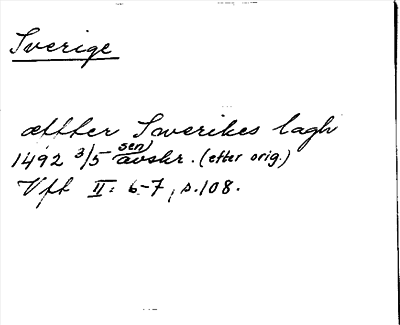 Sverige
ættter Swerikes lagh
1492 3/5 sen avskr. (efter orig.)
Vft II: 6-7, s. 108.